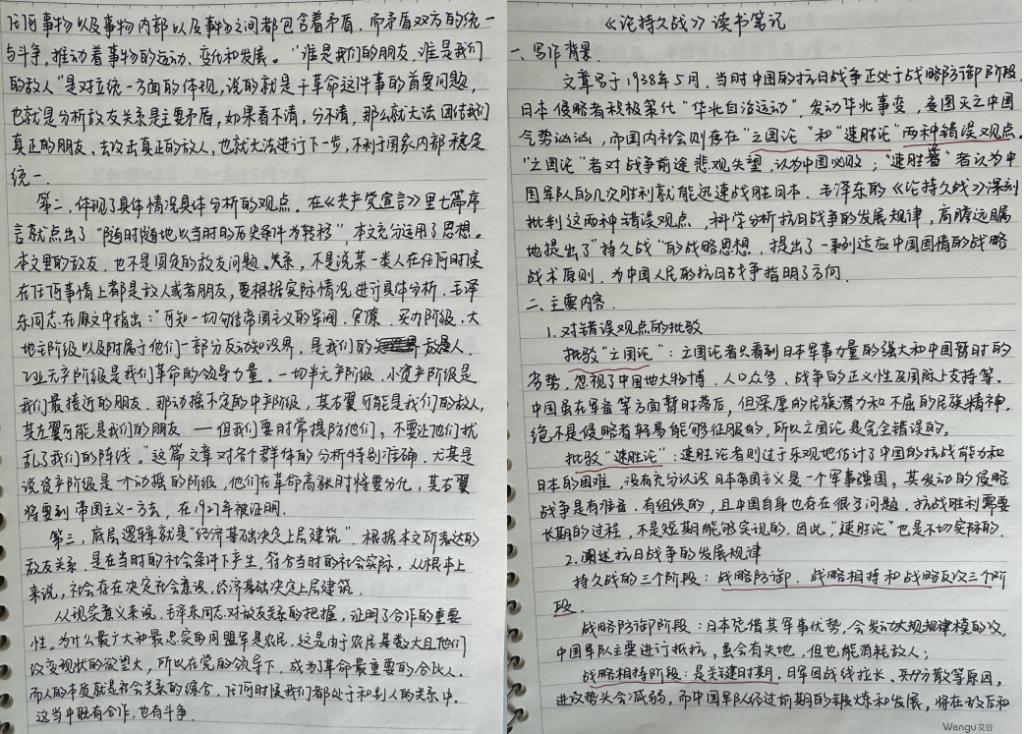 任何事物以及事物内部以及事物之间都包含着矛盾，而矛盾双方的统一
与斗争，推动着事物的运动、变化和发展。“谁是我们的朋友，谁是我们
的敌人”是对立统一方面的体现，说的就是干革命这件事的首要问题，
也就是分析敌友关系是主要矛盾，如果看不清，分不清，那么就无法团结我们
真正的朋友，去攻击真正的敌人，也就无法进行下一步，不利于国家内部稳定
统一．
第二，体现了具体情况具体分析的观点．在《共产党宣言》里七篇序
言就点出了“随时随地以当时的历史条件为转移”，本文充分运用了思想．
本文里的敌友，也不是固定的敌友问题。关系，不是说某一类人在任何时候
在任何事情上都是敌人或者朋友，要根据实际情况进行具体分析．毛泽
东同志在原文中指出：“可知一切勾结帝国主义的军阀、官僚、买办阶级、大
地主阶级以及附属于他们一部分反动知识界，是我们的敌人．
工业无产阶级是我们革命的领导力量。一切半无产阶级、小资产阶级是
我们最接近的朋友．那动摇不定的中产阶级，其右翼可能是我们的敌人，
其左翼可能是我们的朋友 ——但我们要时常提防他们，不要让他们扰
乱了我们的阵线。”这篇文章对各个群体的分析特别准确．尤其是
说资产阶级是一个动摇的阶级，他们在革命高涨时将要分化，其右翼
将要到帝国主义一方去，在1927年被证明．
第三，底层逻辑就是“经济基础决定上层建筑”．根据本文所表达的
敌友关系，是在当时的社会条件下产生，符合当时的社会实际，从根本上
来说，社会存在决定社会意识，经济基础决定上层建筑．
从现实意义来说，毛泽东同志对敌友关系的把握，证明了合作的重要
性。为什么最广大和最忠实的同盟军是农民，这是由于农民基数大且他们
改变现状的欲望大，所以在党的领导下，成为革命最重要的合伙人．
而人的本质就是社会关系的综合，任何时候我们都处于和别人的关系中．
这当中既有合作，也有斗争．
《论持久战》读书笔记
一、写作背景．
文章写于1938年5月，当时中国的抗日战争正处于战略防御阶段．
日本侵略者积极策化“华北自治运动”，发动华北事变，妄图灭亡中国
气势汹汹，而国内社会则存在“亡国论”和“速胜论”两种错误观点．
“亡国论”者对战争前途悲观失望，认为中国必败；“速胜者”者认为中
国军队的几次胜利就能迅速战胜日本．毛泽东的《论持久战》深刻
批判这两种错误观点，科学分析抗日战争的发展规律，高瞻远瞩
地提出了“持久战”的战略思想．提出了一系列适应中国国情的战略
战术原则．为中国人民的抗日战争指明了方向．
二、主要内容．
1．对错误观点的批驳
批驳“亡国论”：亡国论者只看到日本军事力量的强大和中国暂时的
劣势，忽视了中国地大物博、人口众多、战争的正义性及国际上支持等．
中国虽在军备等方面暂时落后，但深厚的民族潜力和不屈的民族精神，
绝不是侵略者轻易能够征服的，所以亡国论是完全错误的．
批驳“速胜论”：速胜论者则过于乐观地估计了中国的抗战能力和
日本的困难．没有充分认识日本帝国主义是一个军事强国，其发动的侵略
战争是有准备、有组织的，且中国自身也存在很多问题．抗战胜利需要
长期的过程，不是短期能够实现的．因此，“速胜论”也是不切实际的．
2．阐述抗日战争的发展规律
持久战的三个阶段：战略防御、战略相持和战略反攻三个阶
段．
战略防御阶段：日本凭借其军事优势，会发动大规模的攻，
中国军队主要进行抵抗，虽会有失地，但也能消耗敌人；
战略相持阶段：是关键时期．日军因战线拉长、兵力分散等原因，
进攻势头会减弱，而中国军队经过前期的锻炼和发展，将在敌后和
Wengu 文谷